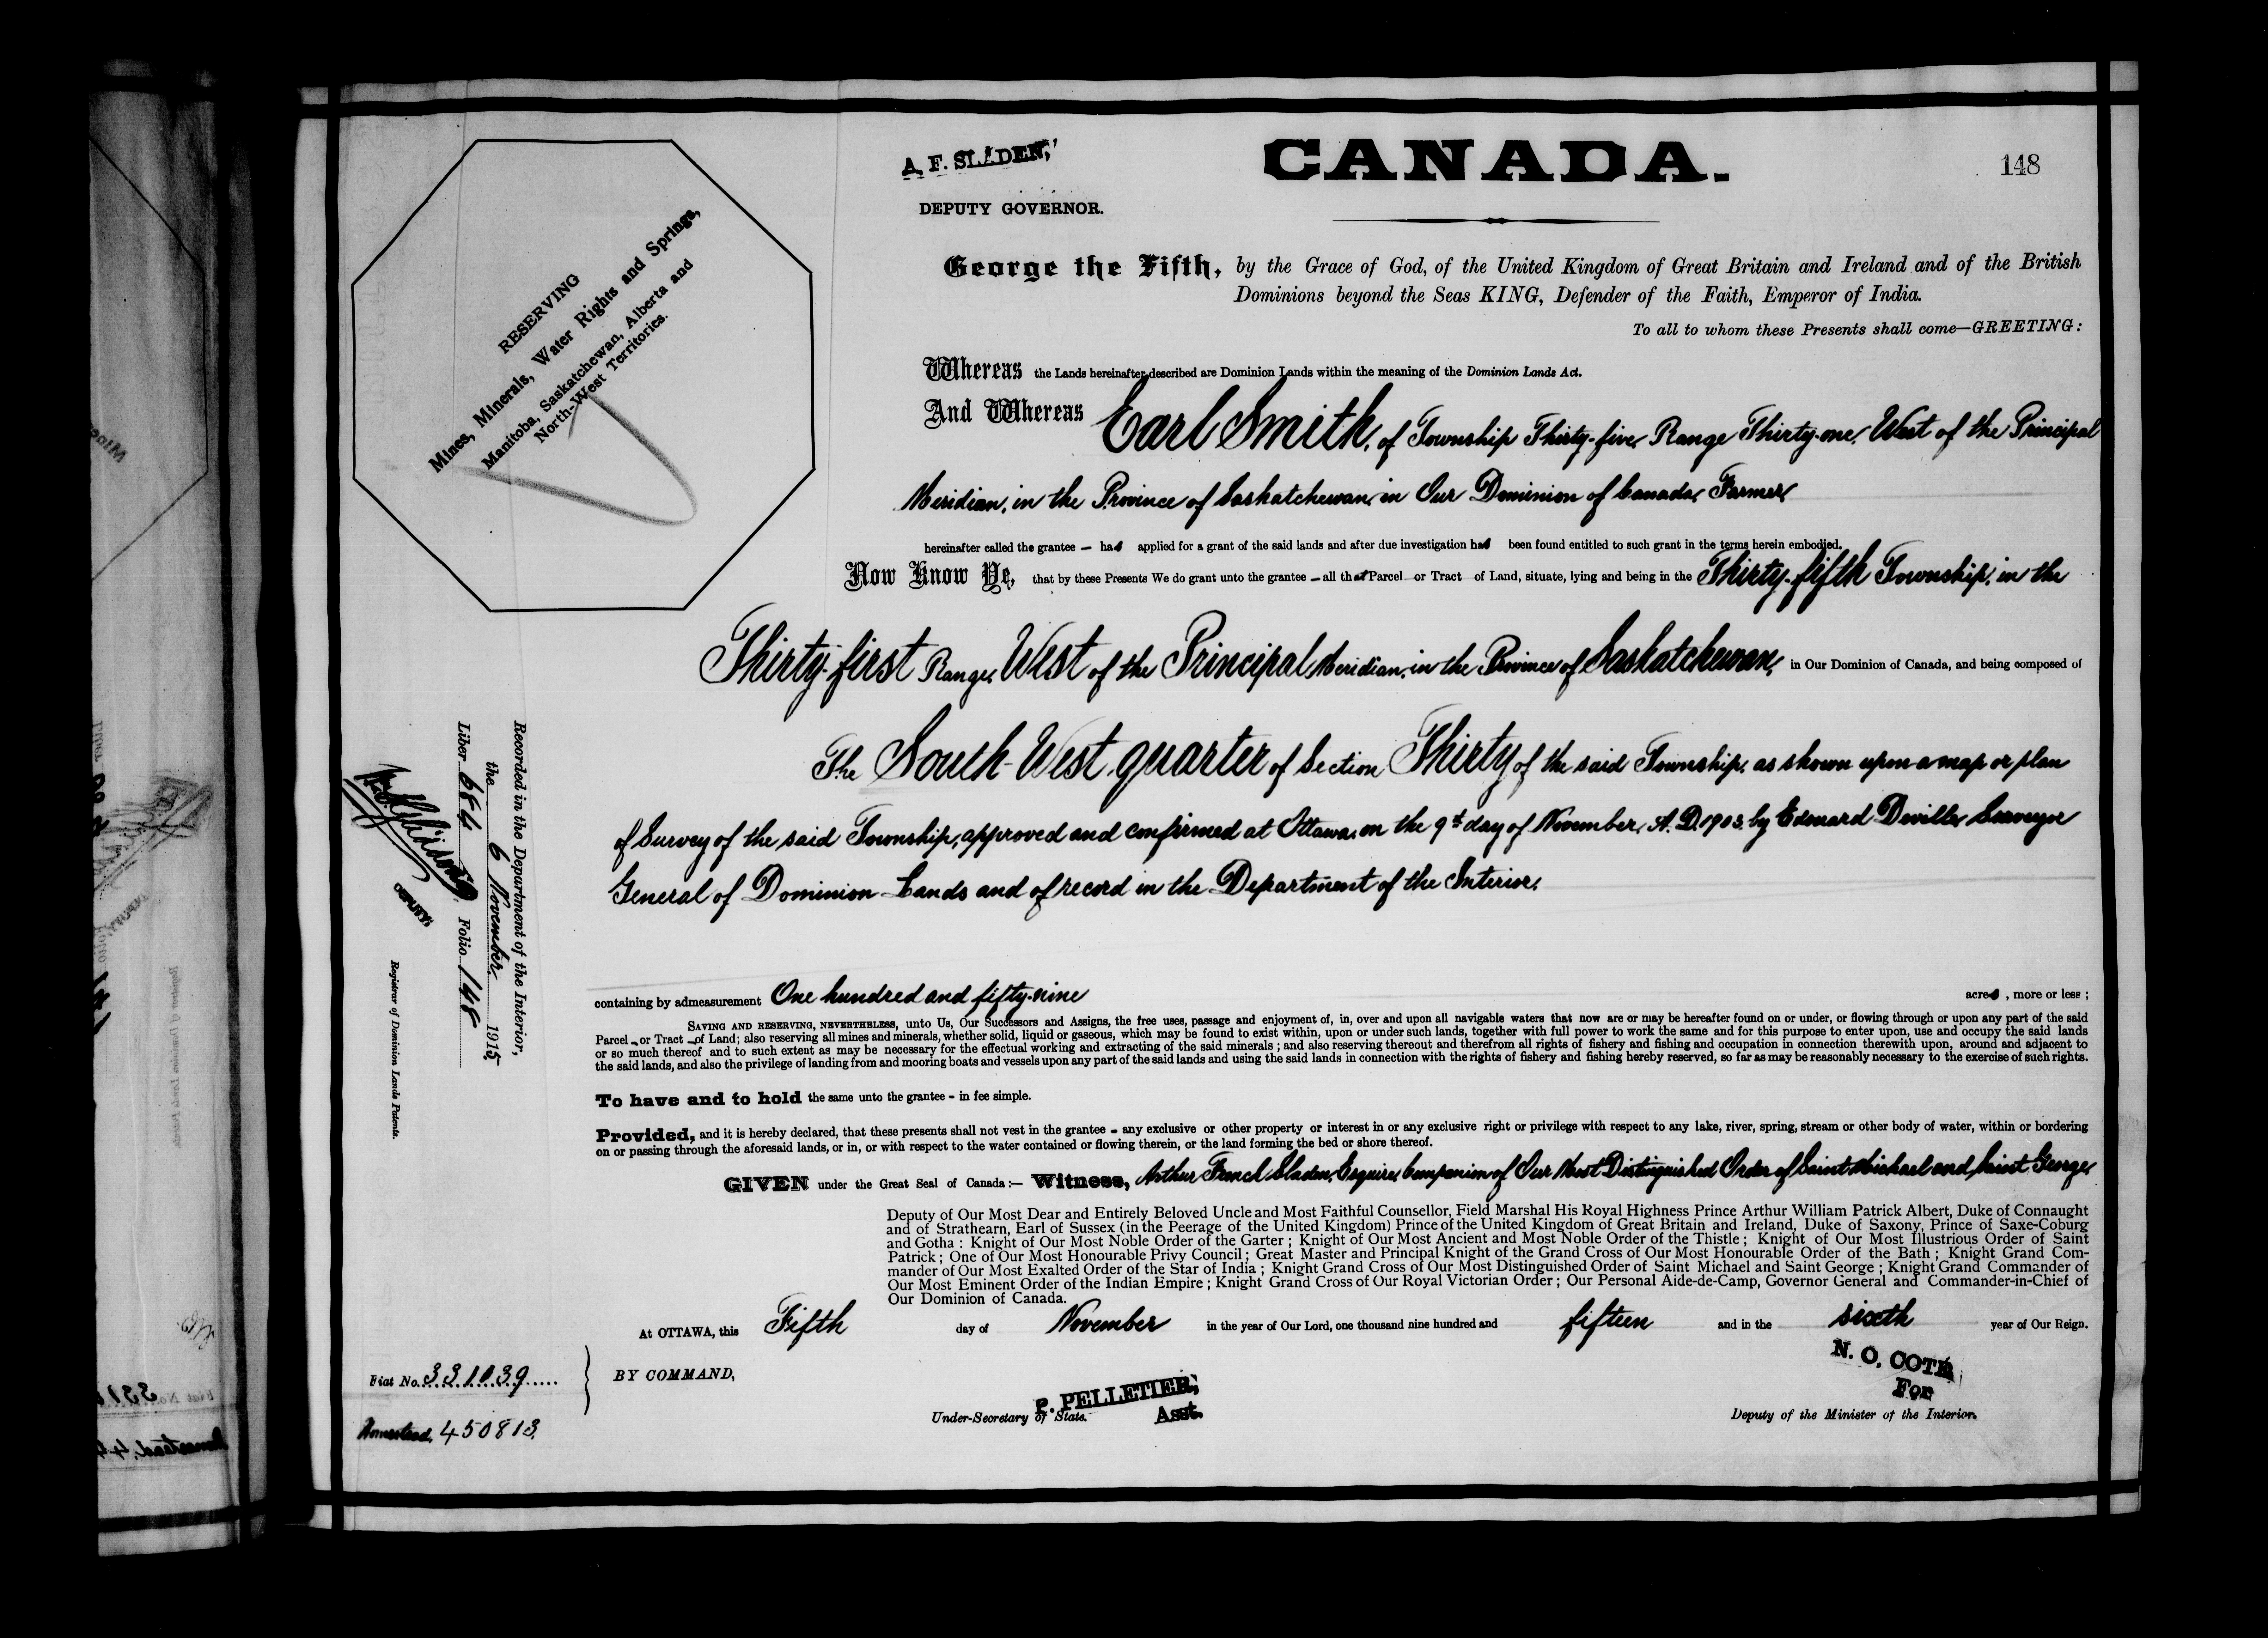 A. F. SLADEN,
DEPUTY GOVERNOR.
CANADA.
148
RESERVING
Mines, Minerals, Water Rights and Springs,
Manitoba, Saskatchewan, Alberta and
North-West Territories.
George the Fifth, by the Grace of God, of the United Kingdom of Great Britain and Ireland and of the British
Dominions beyond the Seas KING, Defender of the Faith, Emperor of India.
To all to whom these Presents shall come—GREETING:
Whereas the Lands hereinafter described are Dominion Lands within the meaning of the Dominion Lands Act.
And Whereas Earl Smith, of Township Thirty-five, Range Thirty-one, West of the Principal
Meridian, in the Province of Saskatchewan, in Our Dominion of Canada, Farmer,
hereinafter called the grantee — has applied for a grant of the said lands and after due investigation has been found entitled to such grant in the terms herein embodied.
Now Know Ye, that by these Presents We do grant unto the grantee — all that Parcel or Tract of Land, situate, lying and being in the Thirty-fifth Township, in the
Thirty-first Range, West of the Principal Meridian, in the Province of Saskatchewan, in Our Dominion of Canada, and being composed of
The South-West quarter of Section Thirty of the said Township, as shown upon a map or plan
of Survey of the said Township, approved and confirmed at Ottawa, on the 9th day of November, A.D. 1903, by Edouard Deville, Surveyor
General of Dominion Lands and of record in the Department of the Interior,
containing by admeasurement One hundred and fifty-nine acres, more or less;
SAVING AND RESERVING, NEVERTHELESS, unto Us, Our Successors and Assigns, the free uses, passage and enjoyment of, in, over and upon all navigable waters that now are or may be hereafter found on or under, or flowing through or upon any part of the said
Parcel - or Tract - of Land; also reserving all mines and minerals, whether solid, liquid or gaseous, which may be found to exist within, upon or under such lands, together with full power to work the same and for this purpose to enter upon, use and occupy the said lands
or so much thereof and to such extent as may be necessary for the effectual working and extracting of the said minerals; and also reserving thereout and therefrom all rights of fishery and fishing and occupation in connection therewith upon, around and adjacent to
the said lands, and also the privilege of landing from and mooring boats and vessels upon any part of the said lands and using the said lands in connection with the rights of fishery and fishing hereby reserved, so far as may be reasonably necessary to the exercise of such rights.
To have and to hold the same unto the grantee - in fee simple.
Provided, and it is hereby declared, that these presents shall not vest in the grantee - any exclusive or other property or interest in or any exclusive right or privilege with respect to any lake, river, spring, stream or other body of water, within or bordering
on or passing through the aforesaid lands, or in, or with respect to the water contained or flowing therein, or the land forming the bed or shore thereof.
GIVEN under the Great Seal of Canada:— Witness, Arthur French Sladen, Esquire, Companion of Our Most Distinguished Order of Saint Michael and Saint George,
Deputy of Our Most Dear and Entirely Beloved Uncle and Most Faithful Counsellor, Field Marshal His Royal Highness Prince Arthur William Patrick Albert, Duke of Connaught
and of Strathearn, Earl of Sussex (in the Peerage of the United Kingdom) Prince of the United Kingdom of Great Britain and Ireland, Duke of Saxony, Prince of Saxe-Coburg
and Gotha: Knight of Our Most Noble Order of the Garter; Knight of Our Most Ancient and Most Noble Order of the Thistle; Knight of Our Most Illustrious Order of Saint
Patrick; One of Our Most Honourable Privy Council; Great Master and Principal Knight of the Grand Cross of Our Most Honourable Order of the Bath; Knight Grand Com-
mander of Our Most Exalted Order of the Star of India; Knight Grand Cross of Our Most Distinguished Order of Saint Michael and Saint George; Knight Grand Commander of
Our Most Eminent Order of the Indian Empire; Knight Grand Cross of Our Royal Victorian Order; Our Personal Aide-de-Camp, Governor General and Commander-in-Chief of
Our Dominion of Canada.
At OTTAWA, this Fifth day of November in the year of Our Lord, one thousand nine hundred and fifteen and in the sixth year of Our Reign.
BY COMMAND,
P. PELLETIER,
Asst.
Under-Secretary of State.
N. O. COTE
For
Deputy of the Minister of the Interior.
Recorded in the Department of the Interior,
the 6 November 1915
Liber 684 Folio 148
DEPUTY
Registrar of Dominion Lands Patents.
Fiat No. 331039
Homestead, 450813